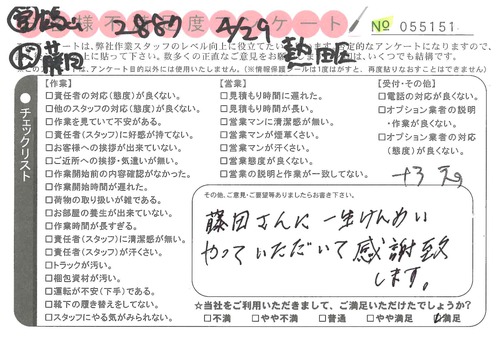 お客様不満足度アンケート
2887 4/29
No 055151
藤田
このアンケートは、弊社作業スタッフのレベル向上に役立てたい
【作業】
□責任者の対応(態度)が良くない。
□他のスタッフの対応(態度)が良くない。
□作業を見ていて不安がある。
□責任者(スタッフ)に好感が持てない。
□お客様への挨拶が出来ていない。
□ご近所への挨拶・気遣いが無い。
□作業開始前の内容確認がなかった。
□作業開始時間が遅れた。
□荷物の取り扱いが雑である。
□お部屋の養生が出来ていない。
□作業時間が長すぎる。
□責任者(スタッフ)に清潔感が無い。
□責任者(スタッフ)が汗くさい。
□トラックが汚い。
□梱包資材が汚い。
□運転が不安(下手)である。
□靴下の履き替えをしてない。
□スタッフにやる気がみられない。
【営業】
□見積もり時間に遅れた。
□見積もり時間が長い。
□営業マンに清潔感が無い。
□営業マンが煙草くさい。
□営業マンが汗くさい。
□営業態度が良くない。
□営業の説明と作業が一致してない。
【受付・その他】
□電話の対応が良くない。
□オプション業者の説明・作業が良くない。
□オプション業者の対応(態度)が良くない。
チェックリスト
その他、ご意見・ご要望等ありましたらお書き下さい。
藤田さんに一生けんめい
やっていただいて感謝致
します。
☆当社をご利用いただきまして、ご満足いただけたでしょうか?
□不満 □やや不満 □普通 □やや満足 ☑満足